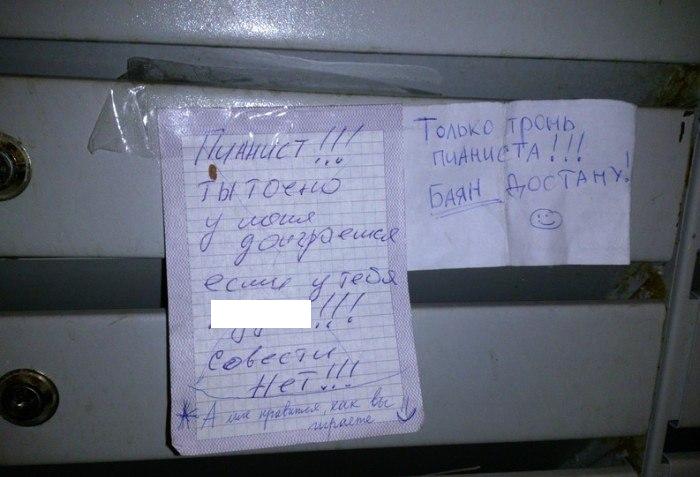 Пианист!!!
ты точно
у меня
доиграешся
если у тебя
!!!
совести
Нет!!!
А мне нравится, как вы
играете
Только тронь
пианиста!!!
Баян достану!